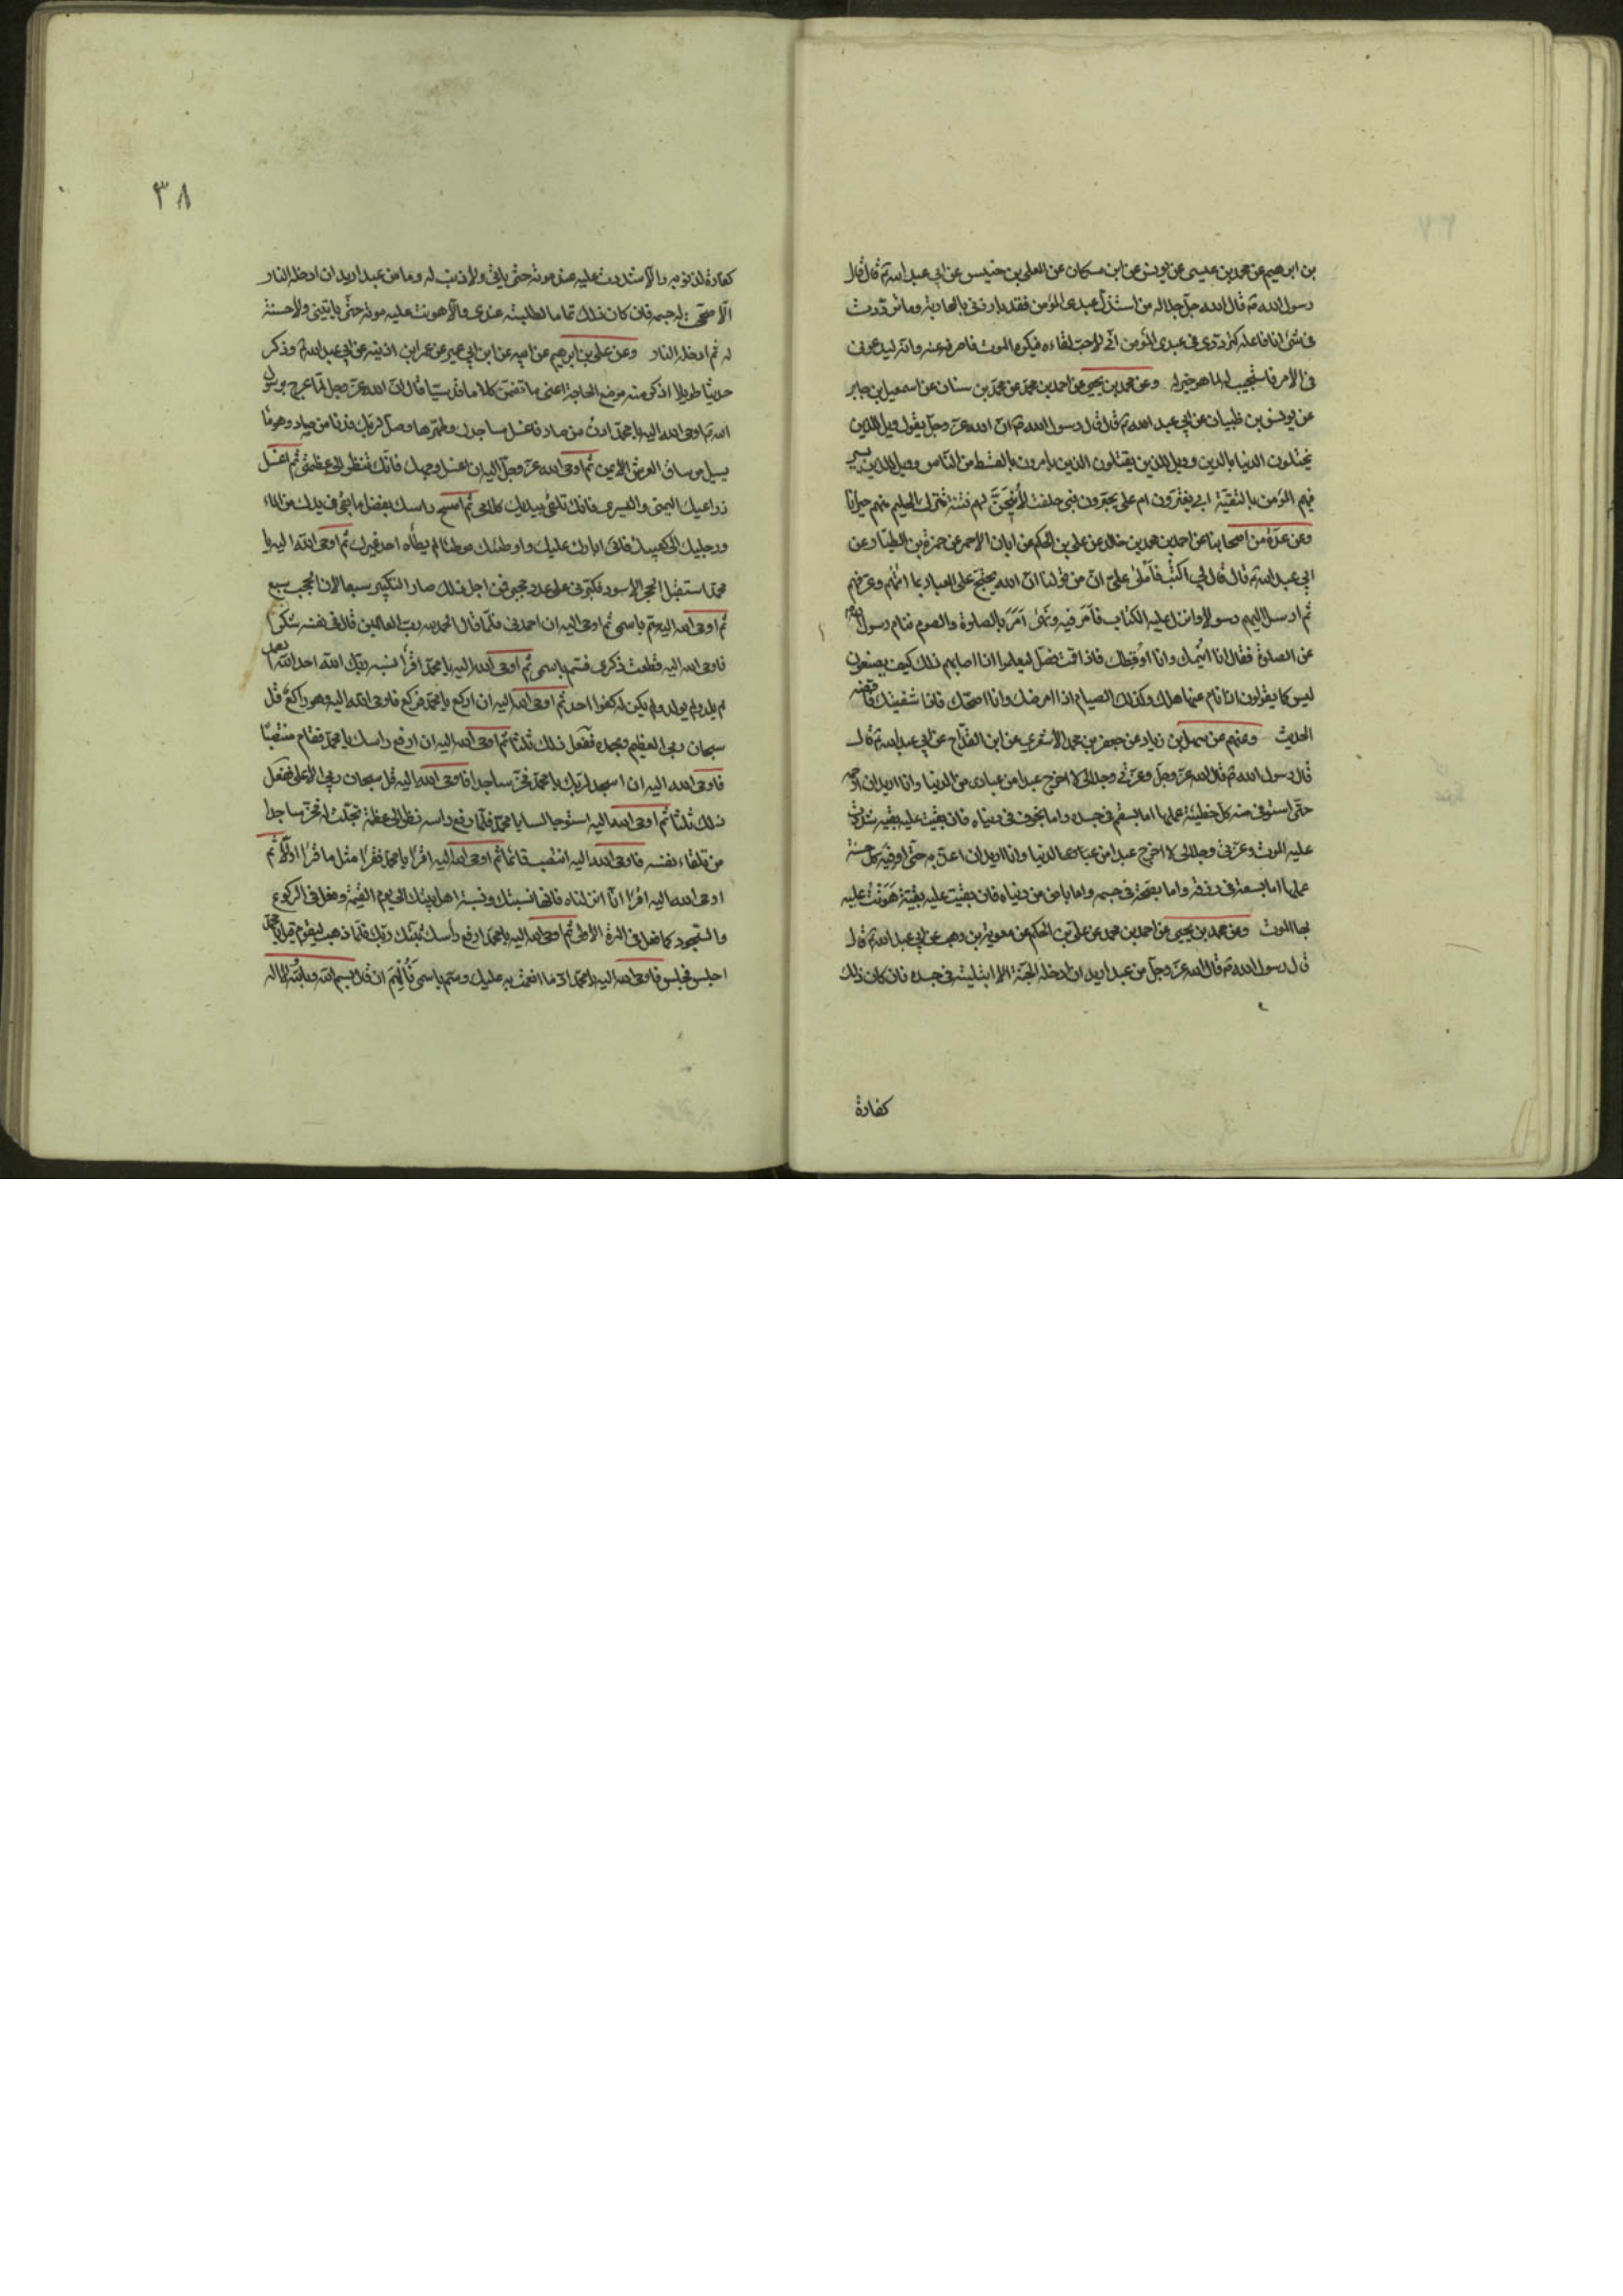 بن ابرهيم عن محمد بن عيسى عن يونس عن ابن مسكان عن المعلى بن خنيس عن ابي عبد الله ع قال قال
رسول الله ص قال الله جل جلاله من استذل عبدى المؤمن فقد بارزنى بالمحاربة وما ترددت
فى شئ انا فاعله كترددى فى عبدى المؤمن انى لاحب لقاءه فيكره الموت فاصرفه عنه وانه ليدعونى
فى الامر فاستجيب له لما هو خير له وعن محمد بن يحيى عن احمد بن محمد عن محمد بن سنان عن اسمعيل بن جابر
عن يونس بن ظبيان عن ابي عبد الله ع قال قال رسول الله ص ان الله عز وجل يقول ويل للذين
يختلون الدنيا بالدين وويل للذين يقتلون الذين يامرون بالقسط من الناس وويل للذين يسير
فيهم المؤمن بالتقية ابي يغترون ام على يجترون فبى حلفت لأتيحن لهم فتنة تترك الحليم منهم حيرانا
وعن عدة من اصحابنا عن احمد بن محمد بن خالد عن علي بن الحكم عن ابان الاحمر عن حمزة بن الطيار عن
ابي عبد الله ع قال قال لي اكتب فأملى علي ان من قولنا ان الله يحتج على العباد بما اتاهم وعرفهم
ثم ارسل اليهم رسولا وانزل عليه الكتاب فأمر فيه ونهى امر بالصلوة والصوم فنام رسول الله
عن الصلوة فقال انا انيمك وانا اوقظك فاذا قمت فصل ليعلموا اذا اصابهم ذلك كيف يصنعون
ليس كما يقولون اذا نام عنها هلك وكذلك الصيام انا امرضك وانا اصحك فاذا شفيتك فاقضه
الحديث وعنهم عن سهل بن زياد عن جعفر بن محمد الاشعري عن ابن القداح عن ابي عبد الله ع قال
قال رسول الله ص قال الله عز وجل وعزتي وجلالى لا اخرج عبدا من عبادى من الدنيا وانا اريد ان ارحمه
حتى استوفى منه كل خطيئة عملها اما بسقم فى جسده واما بخوف فى دنياه فان بقيت عليه بقية شددت
عليه الموت وعزتى وجلالى لا اخرج عبدا من عبادى من الدنيا وانا اريد ان اعذبه حتى اوفيه كل حسنة
عملها اما بسعة فى رزقه واما بصحة فى جسمه واما بامن من دنياه فان بقيت عليه بقية هونت عليه
بها الموت وعن محمد بن يحيى عن احمد بن محمد عن علي بن الحكم عن معوية بن وهب عن ابي عبد الله ع قال
قال رسول الله ص قال الله عز وجل من عبد اريد ان ادخله الجنة الا ابتليته فى جسده فان كان ذلك
كفارة
٣٨
كفارة لذنوبه والا شددت عليه عند موته حتى ياتى ولا ذنب له وما من عبد اريد ان ادخله النار
الا صححت له جسمه فان كان ذلك تماما لطلبته عندى والا هونت عليه موته حتى ياتينى ولا حسنة
له ثم ادخله النار وعن علي بن ابرهيم عن ابيه عن ابن ابي عمير عن عمر ابن اذينه عن ابي عبد الله ع وذكر
حديثا طويلا اذكر منه موضع الحاجة اعنى ما تضمن كلاما قدسيا قال ان الله عز وجل لما عرج برسول
الله ص اوحى الله اليه يا محمد ادن من صاد فاغسل مساجدك وطهرها وصل لربك فدنا من صاد وهو ما
يسيل من ساق العرش الايمن ثم اوحى الله عز وجل اليه ان اغسل وجهك فانك تنظر الى عظمتى ثم اغسل
ذراعيك اليمنى واليسرى فانك تلقى بيديك كلامى ثم امسح راسك بفضل ما بقى فى يدك من الماء
ورجليك الى كعبيك فانى ابارك عليك واوطئك موطئا لم يطأه احد غيرك ثم اوحى الله اليه يا
محمد استقبل الحجر الاسود فكبرنى على عدد حجبى فمن اجل ذلك صار التكبير سبعا لان الحجب سبع
ثم اوحى الله اليه سم باسمى ثم اوحى اليه ان احمدنى فلما قال الحمد لله رب العالمين قال فى نفسه شكرا
فاوحى الله اليه قطعت ذكرى فسم باسمى ثم اوحى الله اليه يا محمد اقرأ نسبة ربك الله احد الله الصمد
لم يلد ولم يولد ولم يكن له كفوا احد ثم اوحى الله اليه ان اركع يا محمد فركع فاوحى الله اليه وهو راكع قل
سبحان ربى العظيم وبحمده ففعل ذلك ثلثا ثم اوحى الله اليه ان ارفع راسك يا محمد فقام منتصبا
فاوحى الله اليه ان اسجد لربك يا محمد فخر ساجدا فاوحى الله اليه قل سبحان ربى الاعلى ففعل
ذلك ثلثا ثم اوحى الله اليه استو جالسا يا محمد فلما رفع راسه نظر الى عظمة تجلت له فخر ساجدا
من تلقاء نفسه فاوحى الله اليه انتصب قائما ثم اوحى الله اليه اقرا يا محمد فقرا مثل ما قرا اولا ثم
اوحى الله اليه اقرا انا انزلناه فانها نسبتك ونسبة اهل بيتك الى يوم القيمة وفعل فى الركوع
والسجود كما فعل فى المرة الاولى ثم اوحى الله اليه يا محمد ارفع رأسك ثبتك ربك فلما ذهب ليقوم قيل يا محمد
اجلس فجلس فاوحى الله اليه يا محمد اذا ما انعمت به عليك وسم باسمى فألهم ان قال بسم الله وبالله لا اله